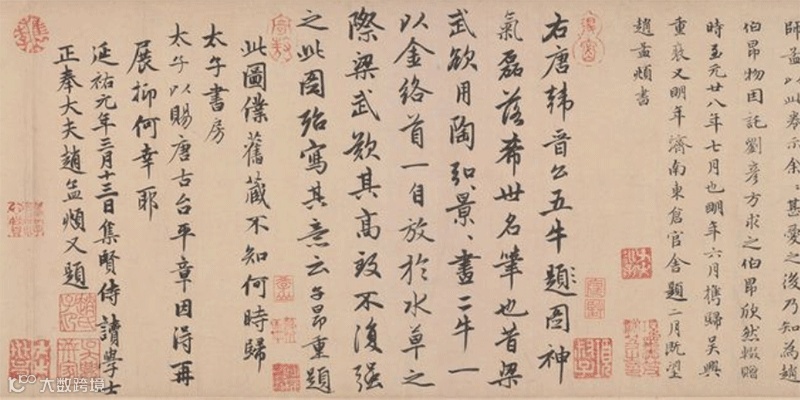 師孟以此卷示余、甚愛之後乃知為趙
伯昂物因託劉彥方求之伯昂欣然輟贈
時至元廿八年七月也明年六月攜歸吳興
重裝又明年濟南東倉官舍題二月既望
趙孟頫書
右唐韓晉公五牛題圖神
氣磊落希世名筆也昔梁
武欲用陶弘景、畫二牛一
以金絡首一自放於水草之
際梁武歎其高致不復强
之此圖殆寫其意云子昂重題
此圖僕舊藏不知何時歸
太子書房
太子以賜唐古台平章因得再
展抑何幸耶
延祐元年三月十三日集賢侍讀學士
正奉大夫趙孟頫又題
大数跨境